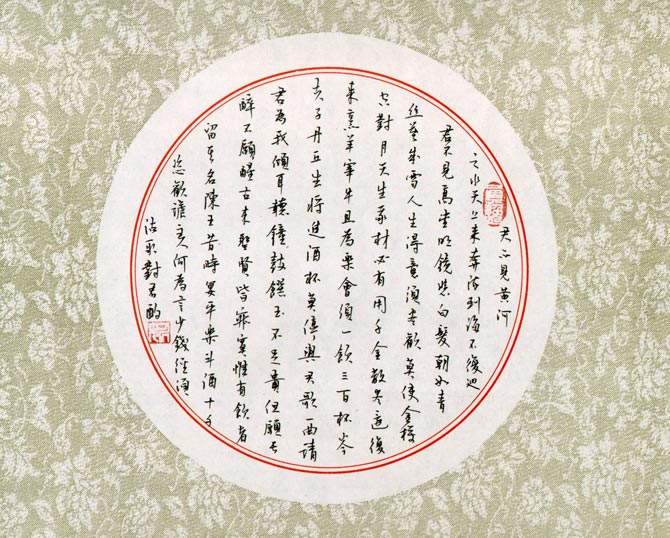 君不見黃河
之水天上來奔流到海不復迴
君不見高堂明鏡悲白髮朝如青
絲暮成雪人生得意須盡歡莫使金樽
空對月天生我材必有用千金散盡還復
來烹羊宰牛且為樂會須一飲三百杯岑
夫子丹丘生將進酒杯莫停與君歌一曲請
君為我傾耳聽鐘鼓饌玉不足貴但願長
醉不願醒古來聖賢皆寂寞惟有飲者
留其名陳王昔時宴平樂斗酒十千
恣歡謔主人何為言少錢徑須
沽取對君酌